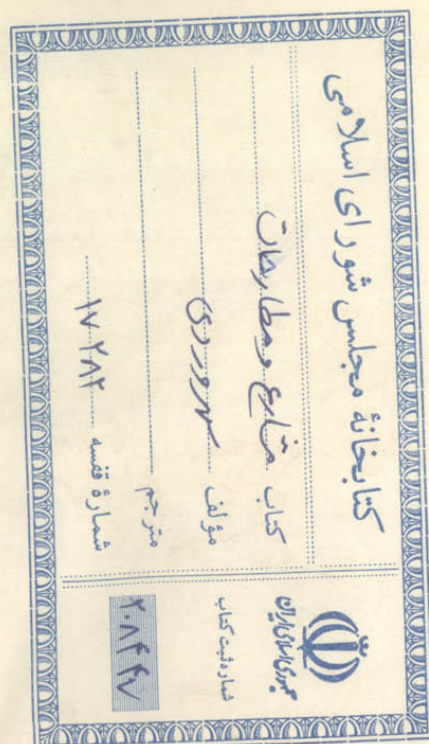 کتابخانهٔ مجلس شورای اسلامی
کتاب مشارع و مطارحات
مؤلف سهروردی
مترجم
شمارهٔ قفسه ۱۷۲۸۲
جمهوری اسلامی ایران
شماره ثبت کتاب
۲۰۸۴۴۷